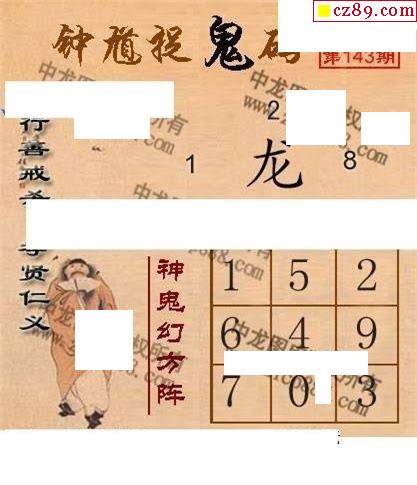 cz89.com
钟馗捉鬼码
第143期
2
1 龙 8
行善戒
贤仁义
神鬼幻方阵
1 5 2
6 4 9
7 0 3